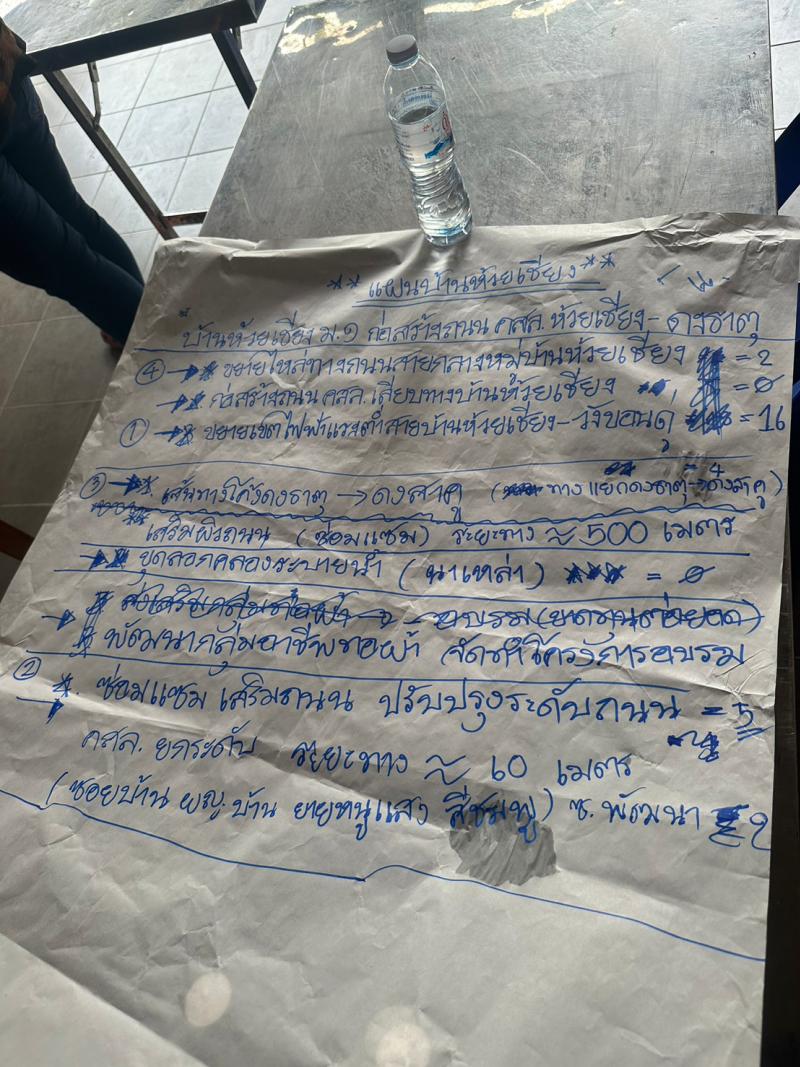 ** แผนบ้านห้วยเซียง **
* บ้านห้วยเซียง ม.๑ ก่อสร้างถนน คสล. ห้วยเซียง - ดงธาตุ
④ → * ขยายไหล่ทางถนนสายกลางหมู่บ้านห้วยเซียง = 2
→ * ก่อสร้างถนน คสล. เลียบทางบ้านห้วยเซียง = 0
① → * ขยายเขตไฟฟ้าแรงต่ำสายบ้านห้วยเซียง - วังบอน = 16
= 4
③ → * เส้นทางโค้งดงธาตุ → ดงสาคู ( ทางแยกดงธาตุ → ดงสาคู )
เสริมผิวถนน (ซ่อมแซม) ระยะทาง ≈ 500 เมตร
→ * ขุดลอกคลองระบายน้ำ ( นาเหล่า ) *** = 0
→ * ส่งเสริมกลุ่มทอผ้า → อบรม (ขาดทุนต่อยอด)
* พัฒนากลุ่มอาชีพทอผ้า จัดทำโครงการอบรม
② → * ซ่อมแซม เสริมถนน ปรับปรุงระดับถนน = 5
คสล. ยกระดับ ระยะทาง ≈ 60 เมตร
(ซอยบ้าน ผญ. บ้าน ยายหนูแสง สีชมพู) ซ. พัฒนา 2